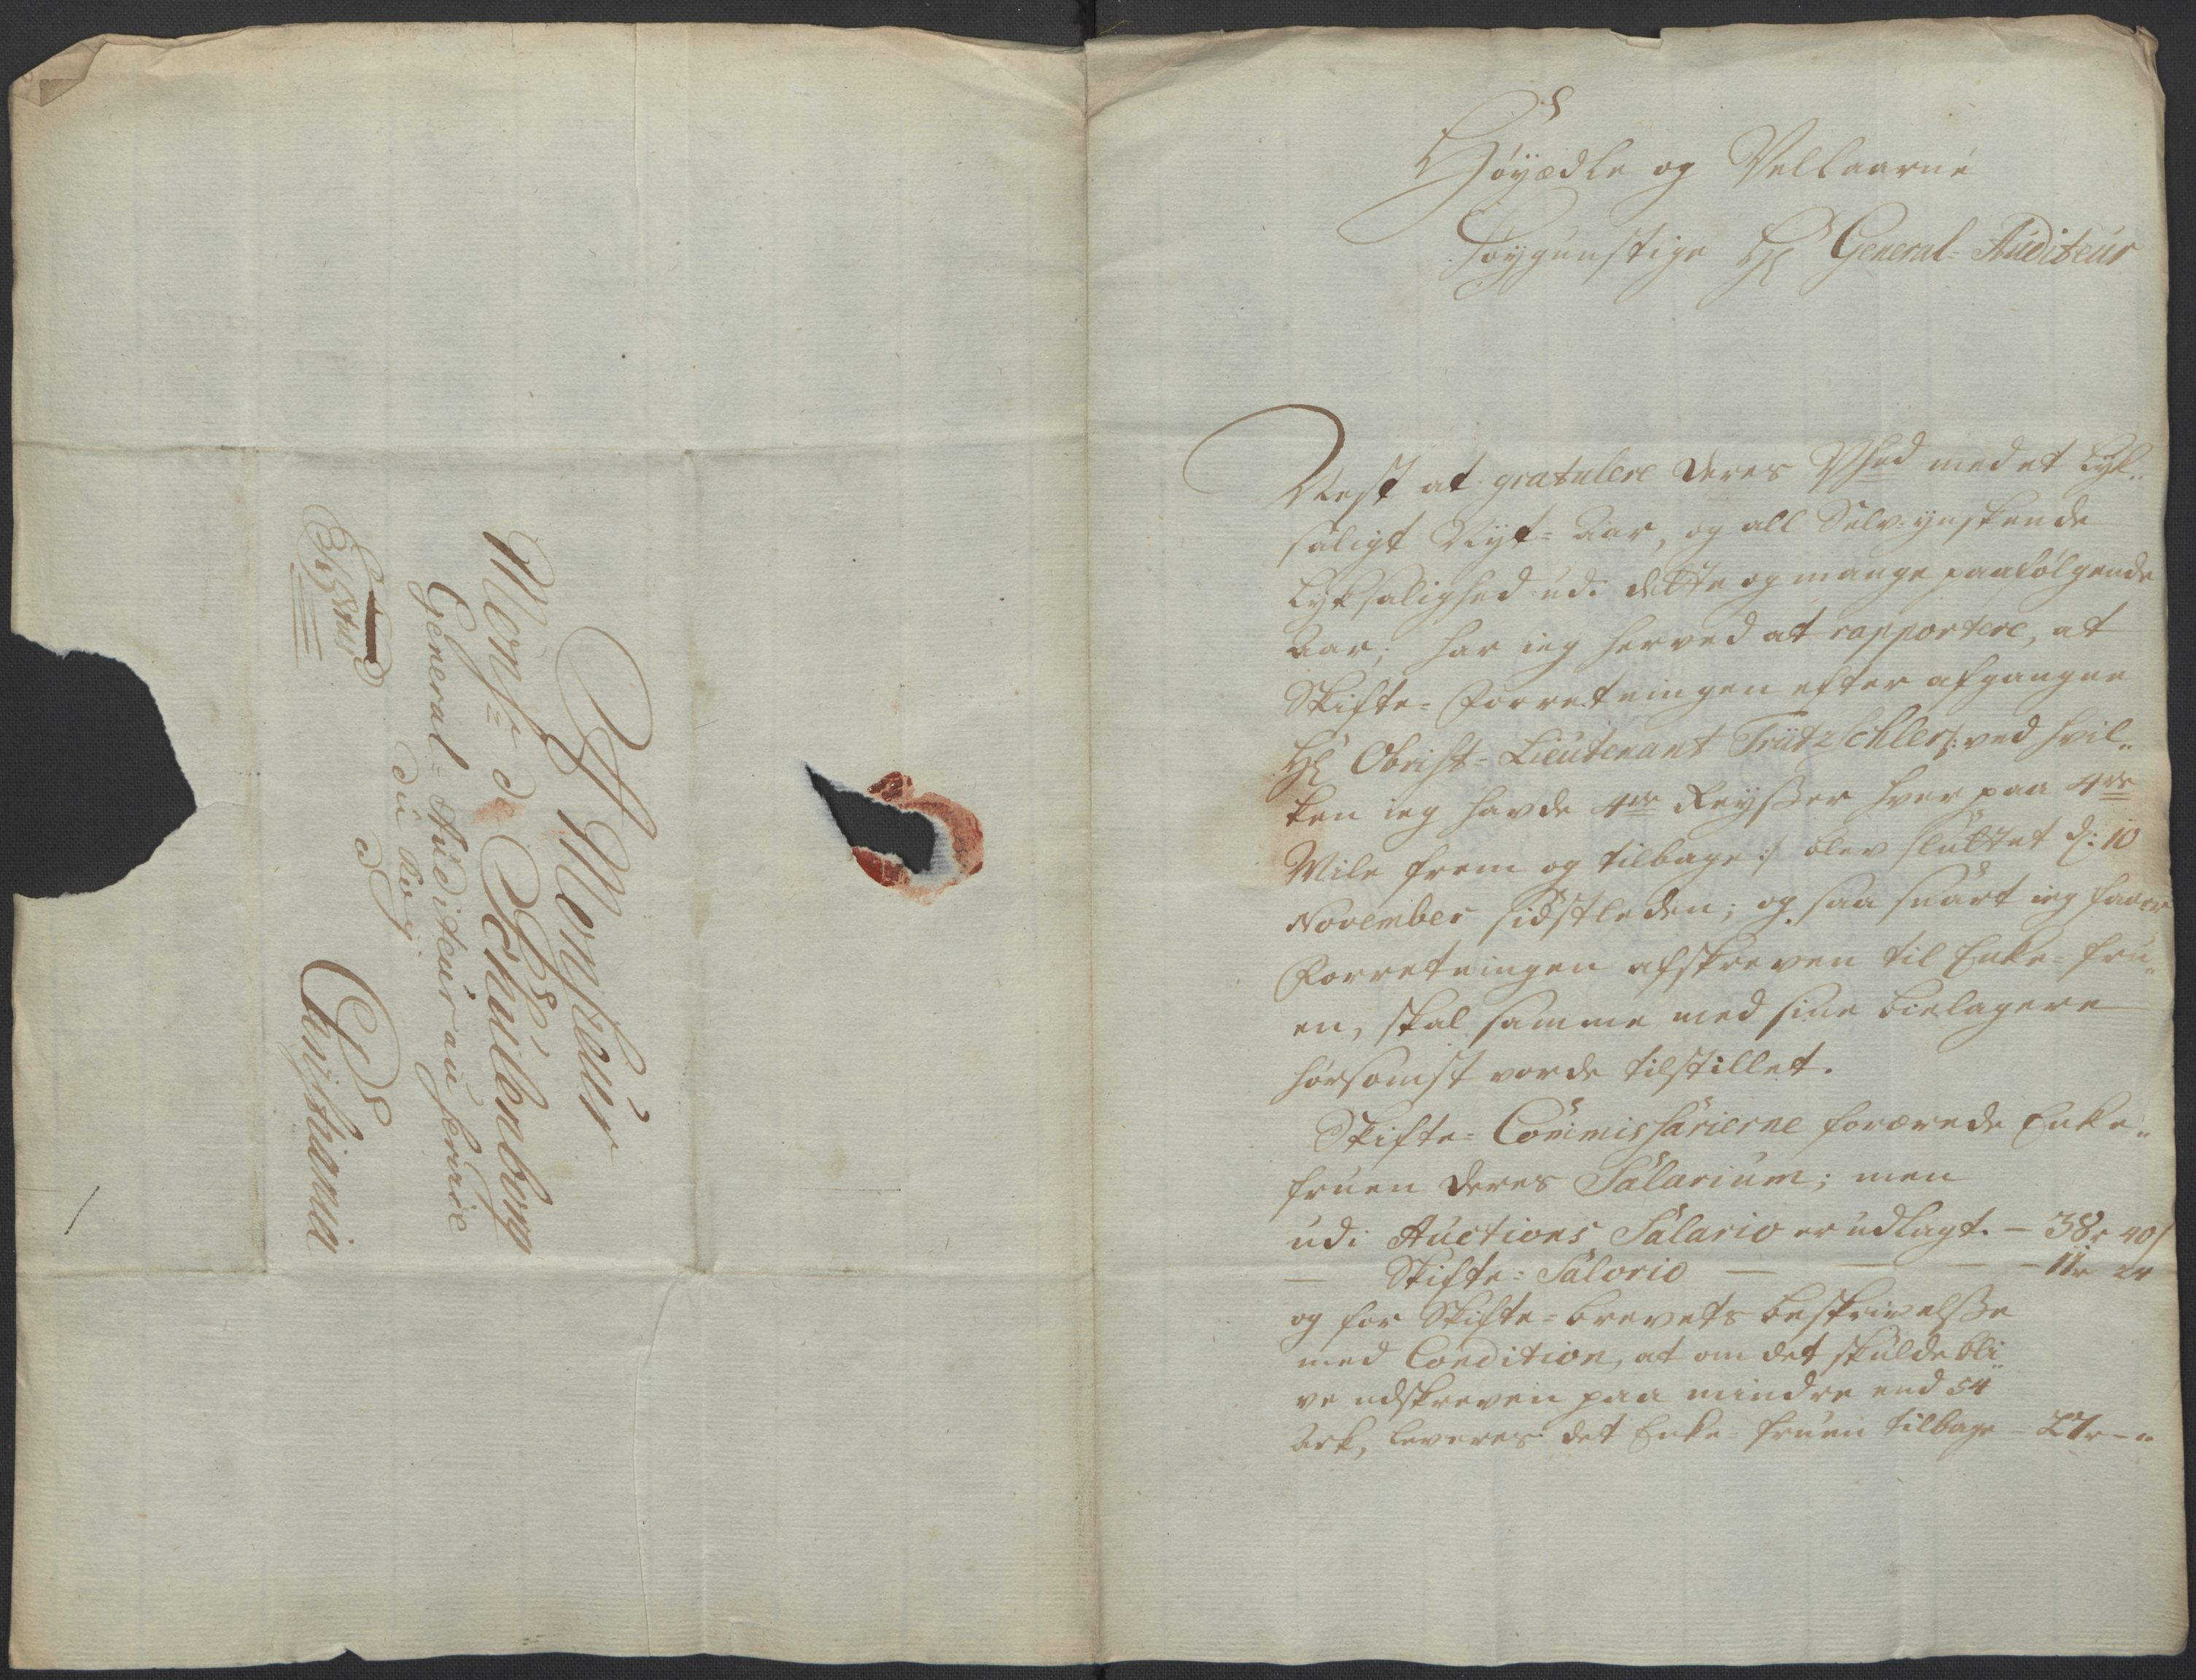 A Monsieur
Monsr: d Schulenborg
General-Auditeur au service
du Roy
Christiania
Høyædle og Velbaarne
Høygunstige Hr General-Auditeur
Nest at gratulere Deres Vhed med et lyk„
saligt Nyt-Aar, og all Selv-ynskende
Lyksalighed udi dette og mange paafølgende
Aar; har ieg herved at rapportere, at
Skifte-Forretningen efter afgangne
Hr Obrist-Lieutenant Trützschler /: ved hvil„
ken ieg havde 4re Reysser hver paa 4re
Mile frem og tilbage :/ blev sluttet d: 10
November sidstleden; og saa snart ieg faaer
Forretningen afskreven til Enke-Fru„
en, skal samme med sine bielagere
hørsomst vorde tilstillet.
Skifte-Commissarierne forærede Enke„
fruen deres Salarium; men
udi Auctions Salario er udlagt. — 38r 40s
— Skifte-Salorio — — — 11r 24
og for Skifte-brevets beskrivelsse
med Condition, at om det skulde bli„
ve udskreven paa mindre end 54
Ark, leveres det Enke-fruen tilbage — 27r - „